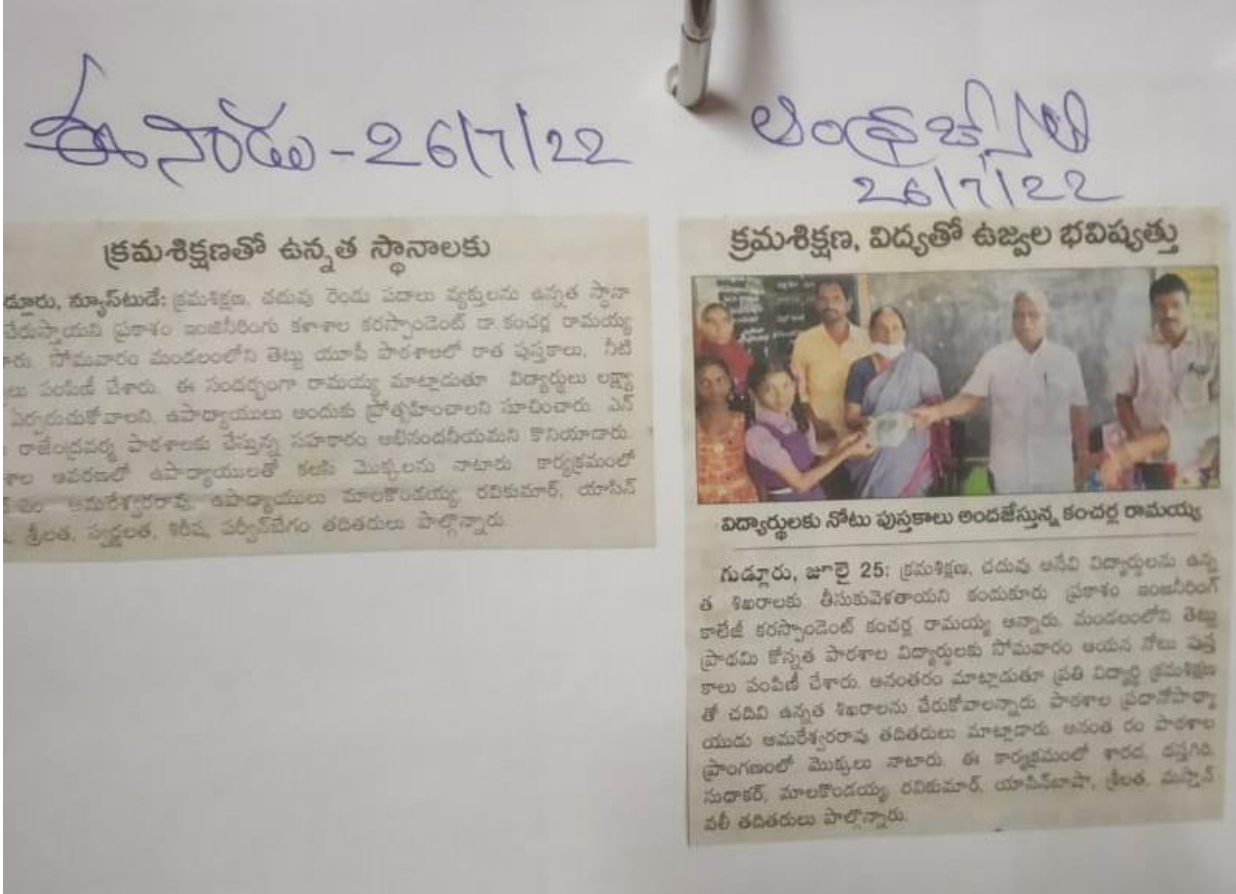 ఈనాడు - 26/7/22
క్రమశిక్షణతో ఉన్నత స్థానాలకు
డ్లూరు, న్యూస్‌టుడే: క్రమశిక్షణ, చదువు రెండు పదాలు వ్యక్తులను ఉన్నత స్థానా
చేరుస్తాయని ప్రకాశం ఇంజినీరింగు కళాశాల కరస్పాండెంట్ డా.కంచర్ల రామయ్య
రు. సోమవారం మండలంలోని తెట్టు యూపీ పాఠశాలలో రాత పుస్తకాలు, నీటి
లు పంపిణీ చేశారు. ఈ సందర్భంగా రామయ్య మాట్లాడుతూ విద్యార్థులు లక్ష్యా
ఏర్పరుచుకోవాలని, ఉపాధ్యాయులు అందుకు ప్రోత్సహించాలని సూచించారు. ఎన్
రాజేంద్రవర్మ పాఠశాలకు చేస్తున్న సహకారం అభినందనీయమని కొనియాడారు.
శాల ఆవరణలో ఉపాధ్యాయులతో కలిసి మొక్కలను నాటారు. కార్యక్రమంలో
అమరేశ్వరరావు, ఉపాధ్యాయులు మాలకొండయ్య, రవికుమార్, యాసిన్
శ్రీలత, స్వర్ణలత, శిరీష, పర్వీన్‌బేగం తదితరులు పాల్గొన్నారు.
ఆంధ్రజ్యోతి
26/7/22
క్రమశిక్షణ, విద్యతో ఉజ్వల భవిష్యత్తు
విద్యార్థులకు నోటు పుస్తకాలు అందజేస్తున్న కంచర్ల రామయ్య
గుడ్లూరు, జూలై 25: క్రమశిక్షణ, చదువు అనేవి విద్యార్థులను ఉన్న
త శిఖరాలకు తీసుకువెళతాయని కందుకూరు ప్రకాశం ఇంజనీరింగ్
కాలేజీ కరస్పాండెంట్ కంచర్ల రామయ్య అన్నారు. మండలంలోని తెట్టు
ప్రాథమి కోన్నత పాఠశాల విద్యార్థులకు సోమవారం ఆయన నోటు పుస్త
కాలు పంపిణీ చేశారు. అనంతరం మాట్లాడుతూ ప్రతి విద్యార్థి క్రమశిక్షణ
తో చదివి ఉన్నత శిఖరాలను చేరుకోవాలన్నారు. పాఠశాల ప్రధానోపాధ్యా
యుడు అమరేశ్వరరావు తదితరులు మాట్లాడారు. అనంత రం పాఠశాల
ప్రాంగణంలో మొక్కలు నాటారు. ఈ కార్యక్రమంలో శారద, దస్తగిరి,
సుధాకర్, మాలకొండయ్య, రవికుమార్, యాసిన్‌బాషా, శ్రీలత, మస్తాన్
వలీ తదితరులు పాల్గొన్నారు.